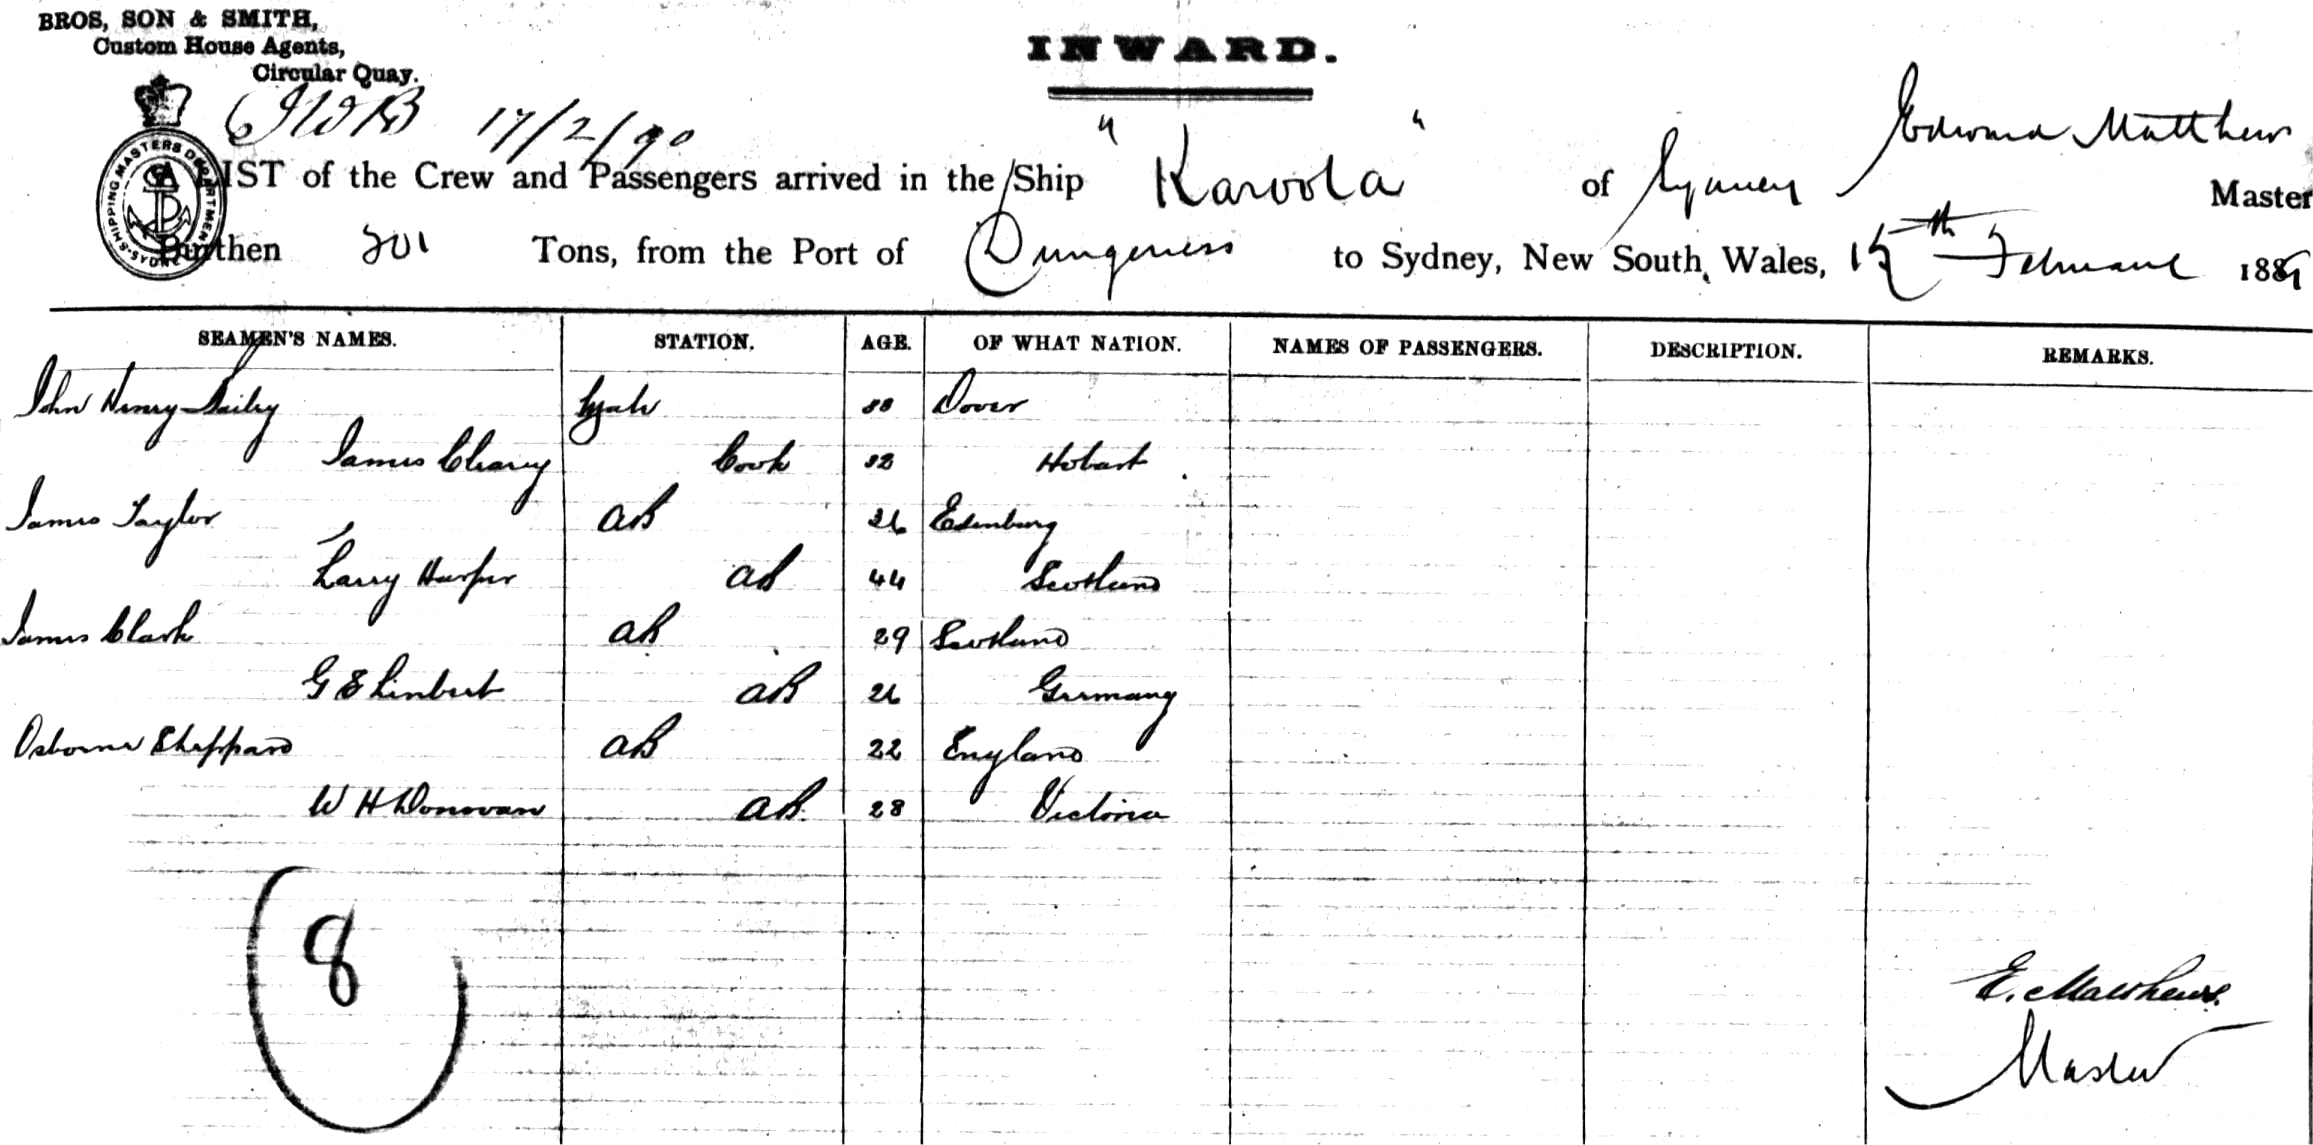 BROS, SON & SMITH,
Custom House Agents,
Circular Quay.
INWARD.
17/2/90
Edward Matthews
A LIST of the Crew and Passengers arrived in the Ship "Karoola" of Sydney Master
SHIPPING MASTERS DEPARTMENT SYDNEY
Burthen 201 Tons, from the Port of Dungeness to Sydney, New South Wales, 15th February 188
SEAMEN'S NAMES. STATION. AGE. OF WHAT NATION. NAMES OF PASSENGERS. DESCRIPTION. REMARKS.
John Henry Dover
James Cleary Cook 32 Hobart
James Taylor AB 26 Edenburg
Harper AB 44 Scotland
James Clark AB 29 Scotland
G E Limbert AB 26 Germany
Osborne Sheppard AB 22 England
W H Donovan AB. 28 Victoria
8
E. Matthews.
Master